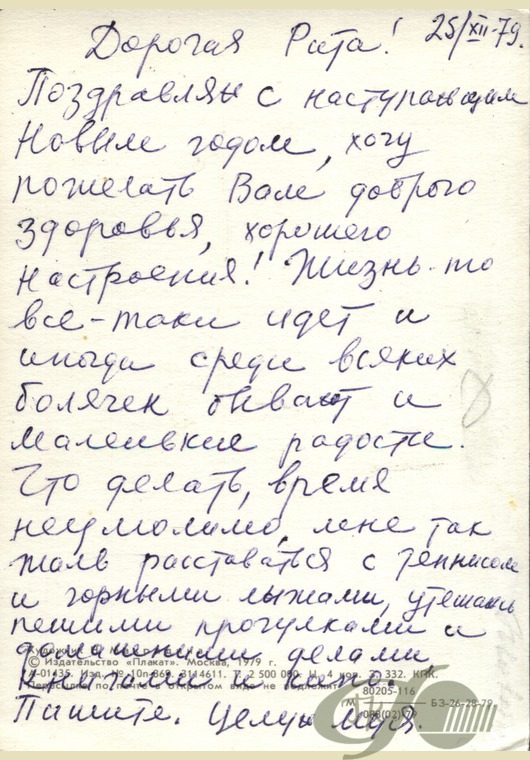 Дорогая Рита! 25/XII-79г.
Поздравляю с наступающим
Новым годом, хочу
пожелать Вам доброго
здоровья, хорошего
настроения! Жизнь-то
все-таки идет и
иногда среди всяких
болячек бывают и
маленькие радости.
Что делать, время
неумолимо, мне так
жаль расставаться с теннисом
и горными лыжами, утешаюсь
пешими прогулками и
домашними делами,
Пишите. Целую Муся.
© Издательство «Плакат». Москва, 1979 г.
А-01435. Изд. № 10-869. 3114611. Т. 2 500 000. Ц. 4 коп. З. 332. КПК.
Пересылка по почте в открытом виде не подлежит
80205-116
М 088(02)-79 БЗ-26-28-79